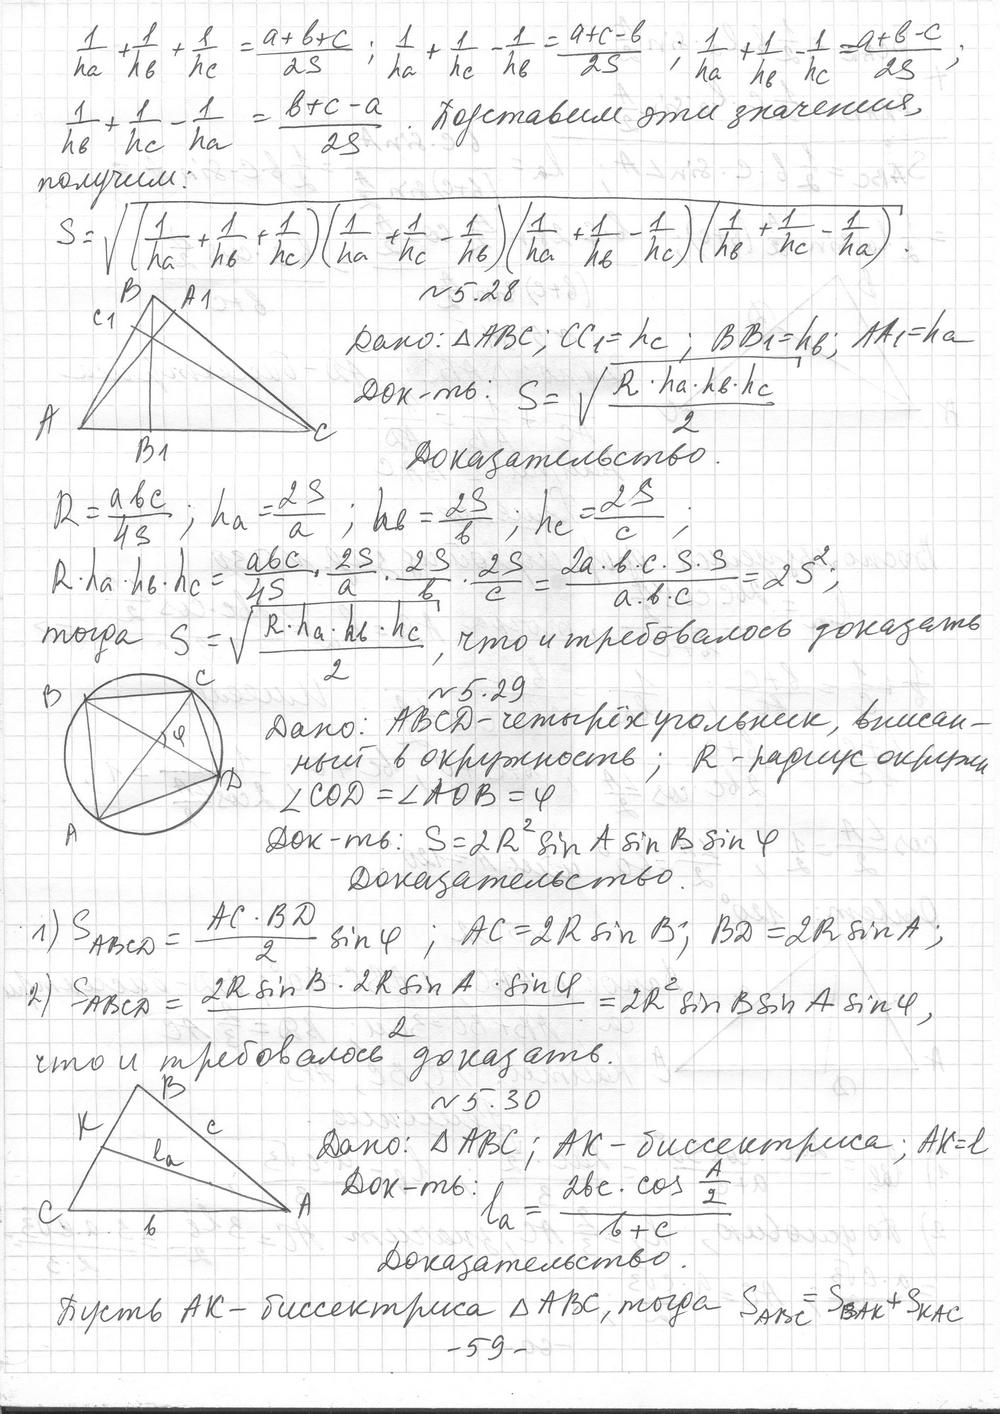 1/ha + 1/hв + 1/hc = (a+в+c)/2S ; 1/ha + 1/hc - 1/hв = (a+c-в)/2S ; 1/ha + 1/hв - 1/hc = (a+в-c)/2S ;
1/hв + 1/hc - 1/ha = (в+c-a)/2S . Подставим эти значения,
получим:
S = √((1/ha + 1/hв + 1/hc)(1/ha + 1/hc - 1/hв)(1/ha + 1/hв - 1/hc)(1/hв + 1/hc - 1/ha)) .
~5.28
B A1
C1
A B1 C
Дано: △ABC; CC1=hc ; BB1=hв; AA1=ha
Док-ть: S = √(R·ha·hв·hc / 2)
Доказательство.
R = aвc/4S ; ha = 2S/a ; hв = 2S/в ; hc = 2S/c ;
R·ha·hв·hc = aвc/4S · 2S/a · 2S/в · 2S/c = 2a·в·c·S·S/a·в·c = 2S²;
тогда S = √(R·ha·hв·hc / 2) , что и требовалось доказать
~5.29
B C
φ
D
A
Дано: ABCD-четырёхугольник, вписан-
ный в окружность; R - радиус окружн
∠COD = ∠AOB = φ
Док-ть: S = 2R² sin A sin B sin φ
Доказательство.
1) S ABCD = AC·BD/2 sin φ ; AC = 2R sin B ; BD = 2R sin A ;
2) S ABCD = 2R sin B · 2R sin A · sin φ / 2 = 2R² sin B sin A sin φ,
что и требовалось доказать.
~5.30
B
K c
la
C в A
Дано: △ABC; AK-биссектриса; AK=l
Док-ть: la = 2вc · cos A/2 / в+c
Доказательство.
Пусть AK-биссектриса △ABC, тогда S ABC = S BAK + S KAC
-59-